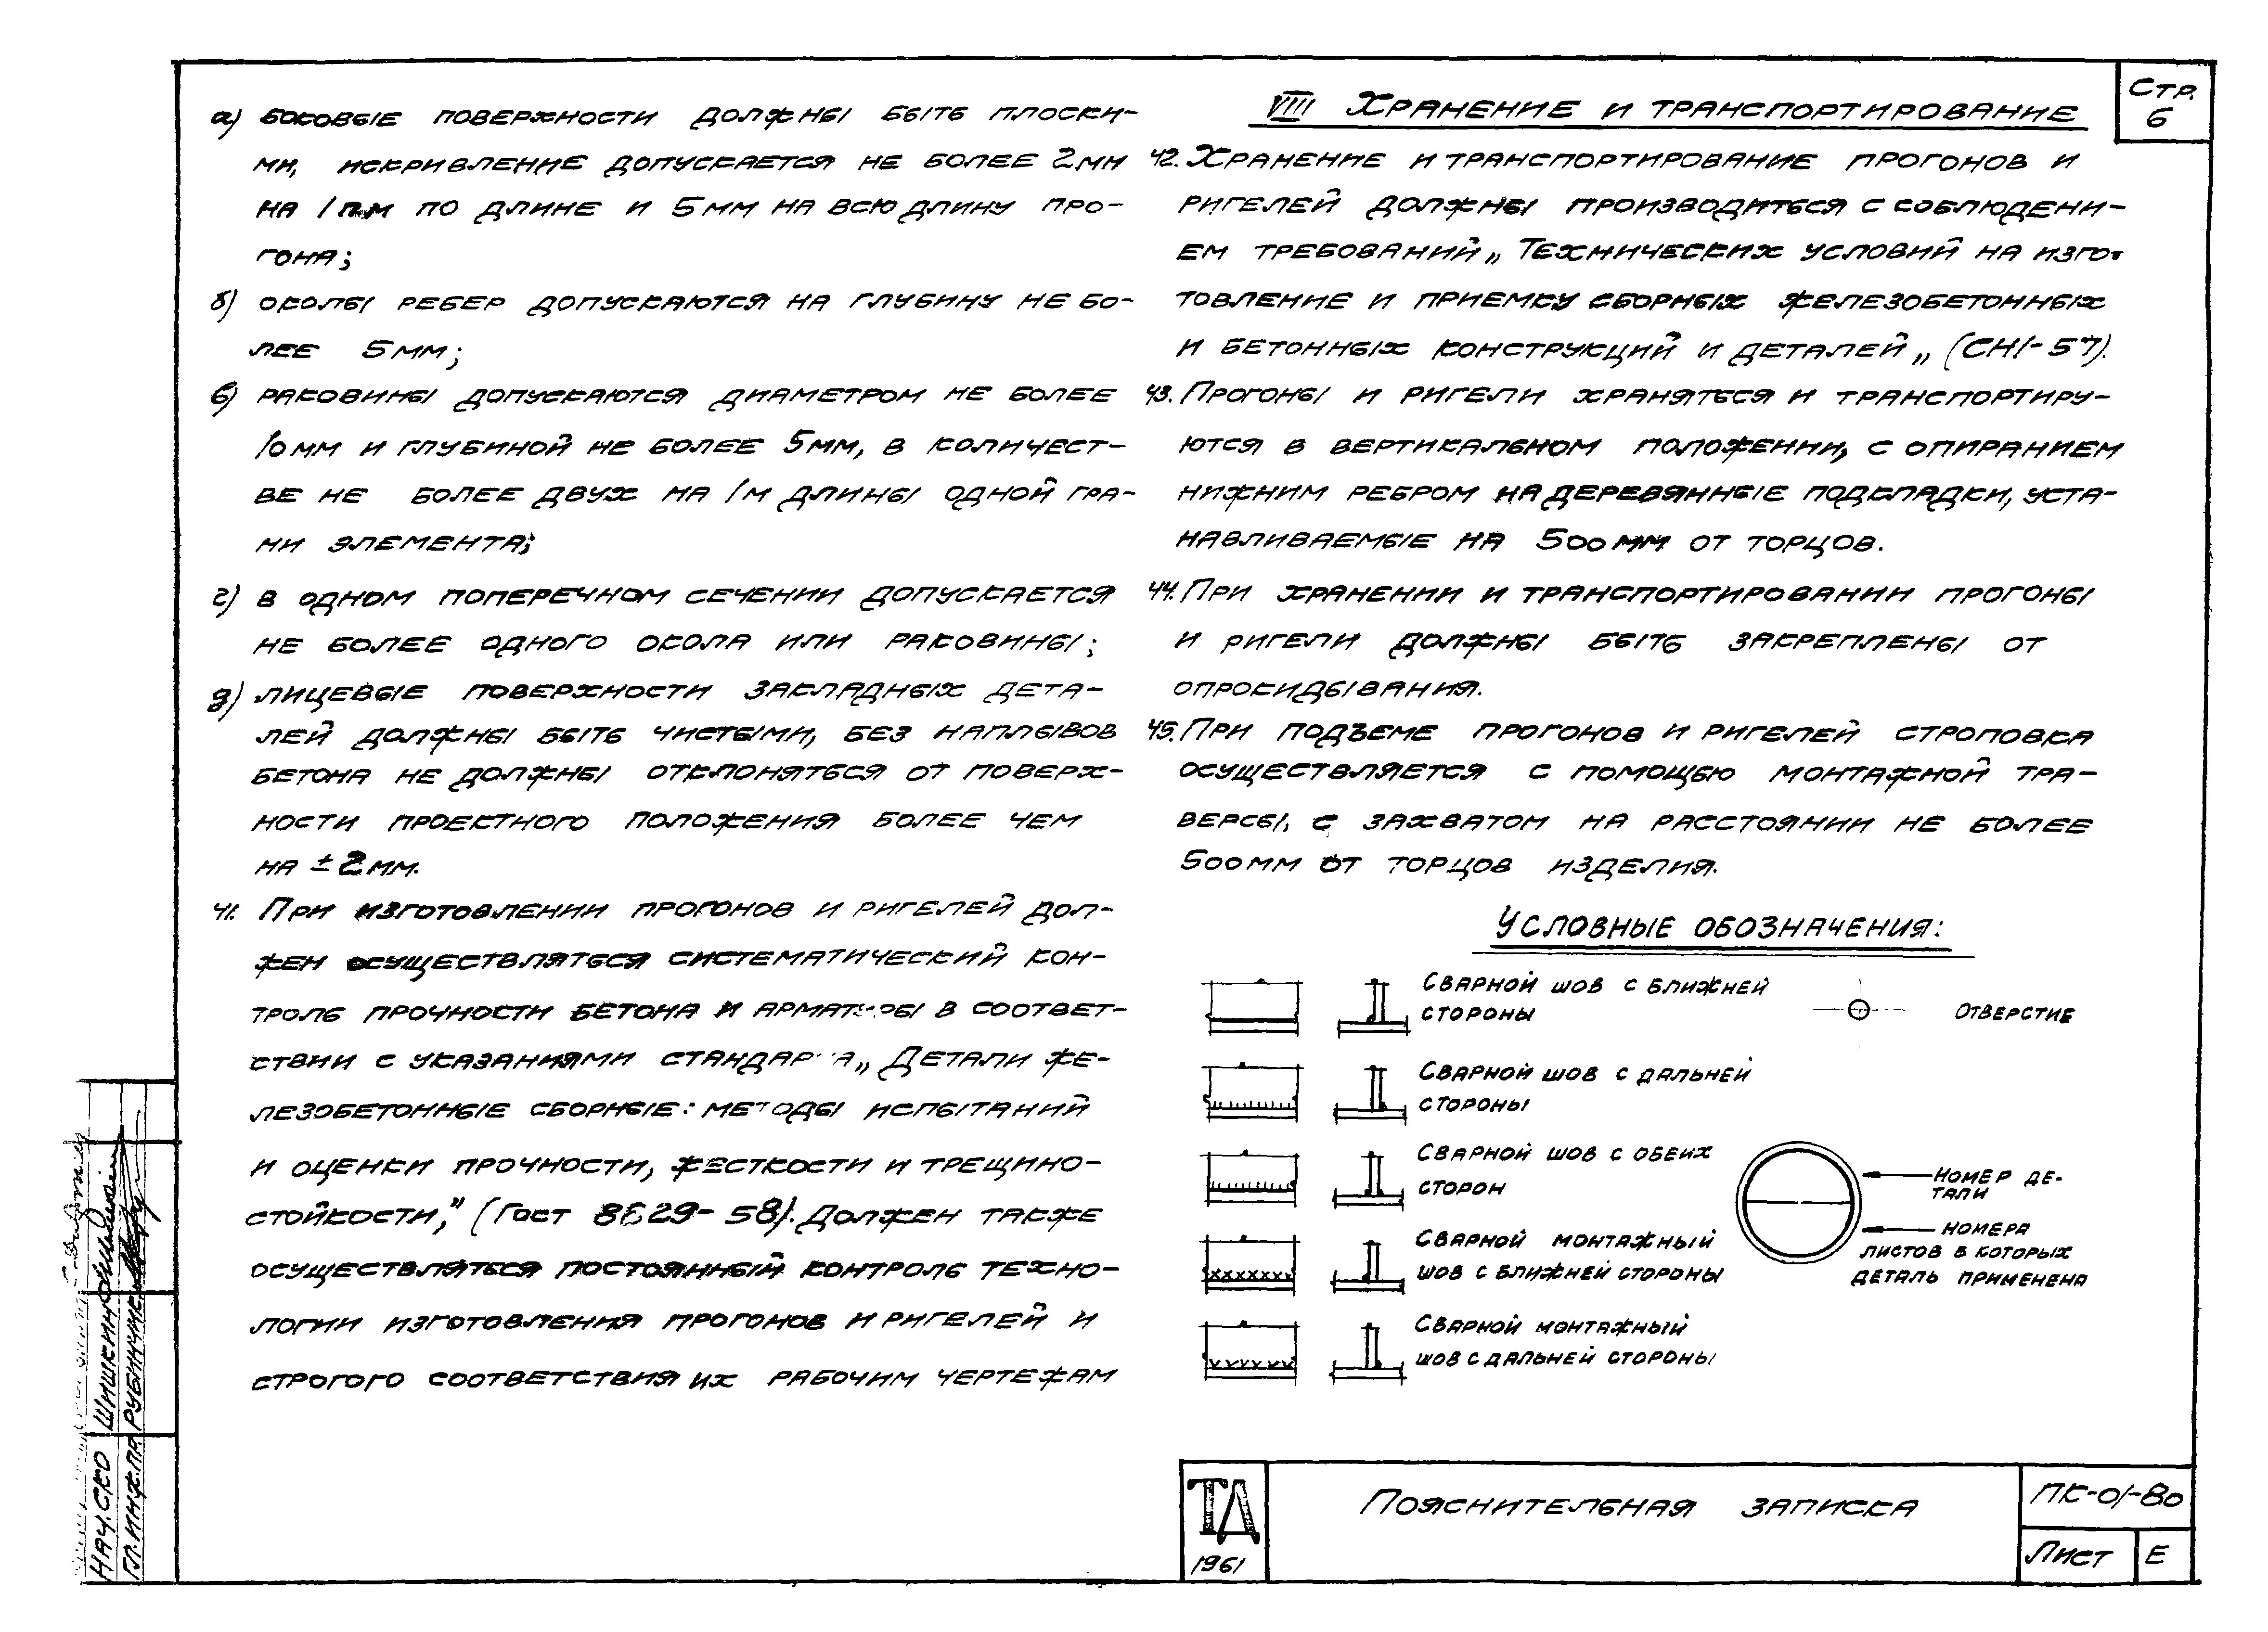 а) боковые поверхности должны быть плоски-
ми, искривление допускается не более 2мм
на 1 п.м по длине и 5мм на всю длину про-
гона;
б) околы ребер допускаются на глубину не бо-
лее 5мм;
в) раковины допускаются диаметром не более
10мм и глубиной не более 5мм, в количест-
ве не более двух на 1м длины одной гра-
ни элемента;
г) в одном поперечном сечении допускается
не более одного окола или раковины;
д) лицевые поверхности закладных дета-
лей должны быть чистыми, без наплывов
бетона не должны отклоняться от поверх-
ности проектного положения более чем
на ±2мм.
41. При изготовлении прогонов и ригелей дол-
жен осуществляться систематический кон-
троль прочности бетона и арматуры в соответ-
ствии с указаниями стандарта „Детали же-
лезобетонные сборные: методы испытаний
и оценки прочности, жесткости и трещино-
стойкости," (Гост 8829-58). Должен также
осуществляться постоянный контроль техно-
логии изготовления прогонов и ригелей и
строгого соответствия их рабочим чертежам
VIII Хранение и транспортирование
Стр.
6
42. Хранение и транспортирование прогонов и
ригелей должны производиться с соблюдени-
ем требований „Технических условий на изго-
товление и приемку сборных железобетонных
и бетонных конструкций и деталей„ (СН1-57).
43. Прогоны и ригели храняться и транспортиру-
ются в вертикальном положении, с опиранием
нижним ребром на деревянные подкладки, уста-
навливаемые на 500мм от торцов.
44. При хранении и транспортировании прогоны
и ригели должны быть закреплены от
опрокидывания.
45. При подъеме прогонов и ригелей строповка
осуществляется с помощью монтажной тра-
версы, с захватом на расстоянии не более
500мм от торцов изделия.
Условные обозначения:
Сварной шов с ближней
стороны
Отверстие
Сварной шов с дальней
стороны
Сварной шов с обеих
сторон
Номер де-
тали
Номера
листов в которых
деталь применена
Сварной монтажный
шов с ближней стороны
Сварной монтажный
шов с дальней стороны
ТД
1961
Пояснительная записка
ПК-01-80
Лист Е
Нач. СКО Шишкин
Гл. инж. пр Рубинчик